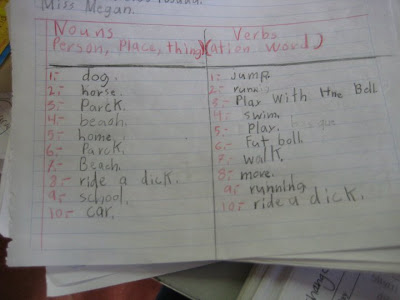 Miss Megan.
Nouns
Person, Place, thing
1:- dog.
2:- horse.
3:- Parck.
4:- beach.
5:- home.
6:- Parck.
7:- Beach.
8:- ride a dick.
9:- school.
10:- car.
Verbs
(ation word)
1:- Jump.
2:- runn.
3:- Play with the Boll
4:- swim.
5:- Play.
6:- Fut boll.
7:- walk.
8:- move.
9:- running
10:- ride a dick.